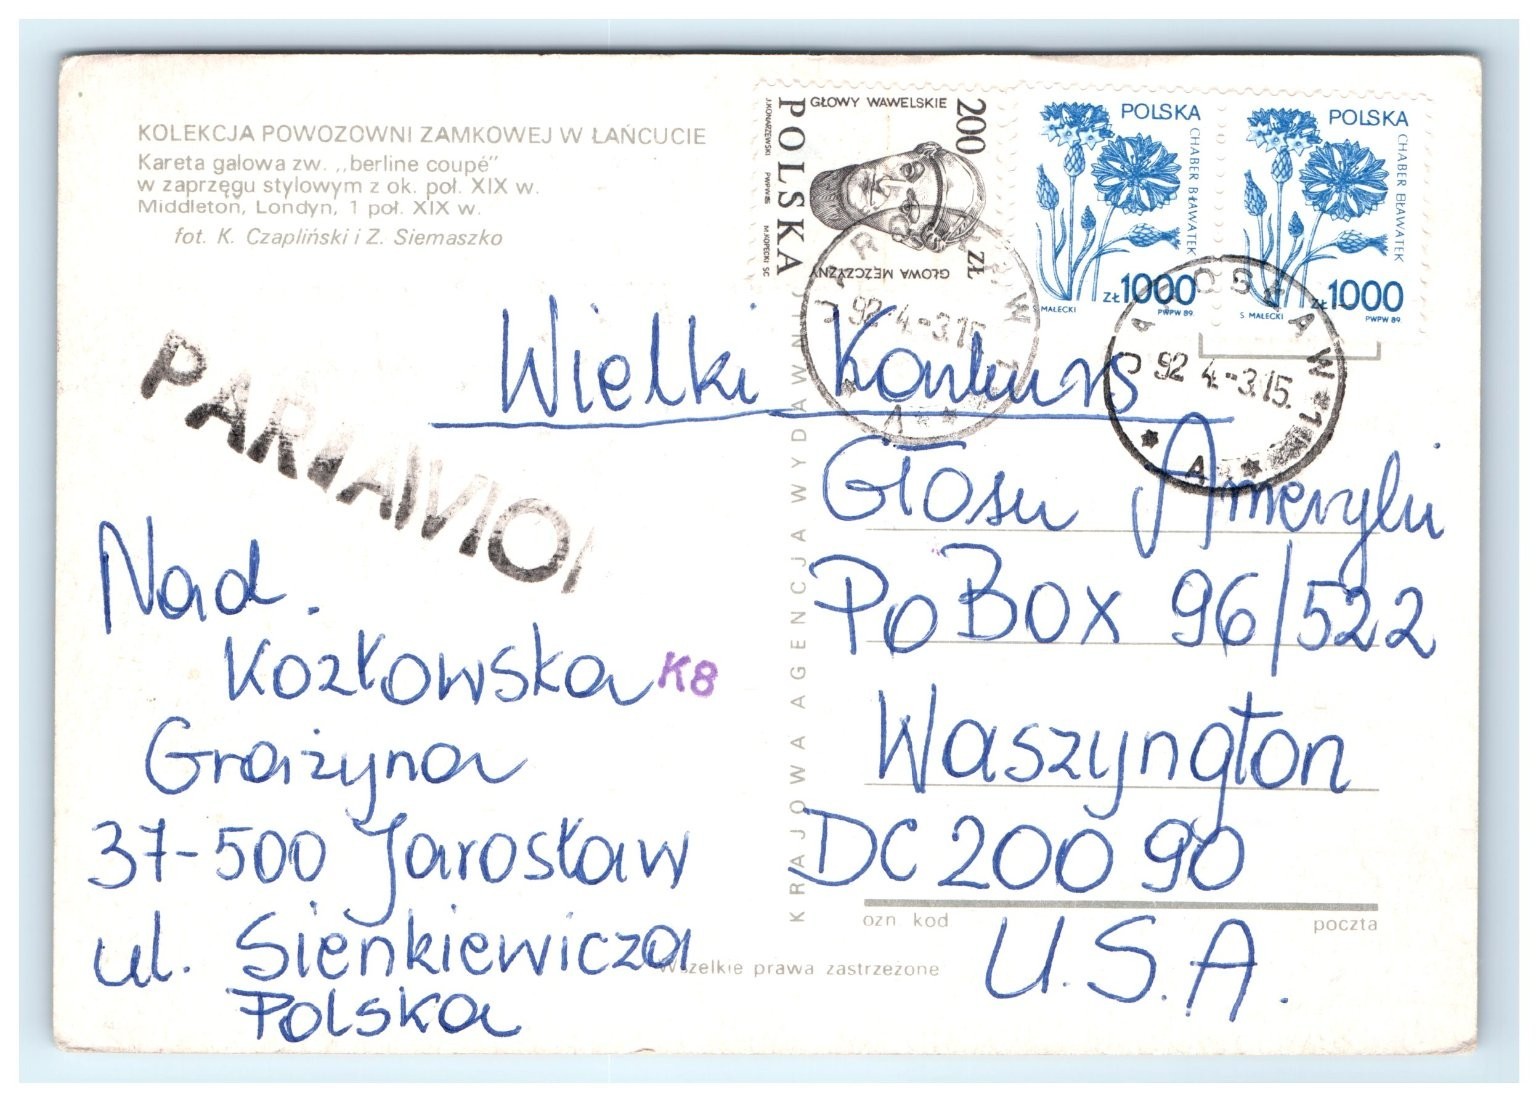 KOLEKCJA POWOZOWNI ZAMKOWEJ W ŁAŃCUCIE
Kareta galowa zw. „berline coupé”
w zaprzęgu stylowym z ok. poł. XIX w.
Middleton, Londyn, 1 poł. XIX w.
fot. K. Czapliński i Z. Siemaszko
GŁOWY WAWELSKIE
200 ZŁ
POLSKA
GŁOWA MĘŻCZYZNY
J.KONARZEWSKI PWPW 85 M.KOPECKI SC
POLSKA
CHABER BŁAWATEK
ZŁ 1000
MAŁECKI PWPW 89
POLSKA
CHABER BŁAWATEK
ZŁ 1000
S. MAŁECKI PWPW 89
92 4.-3.15.
A
JAROSŁAW 1
92 4.-3.15.
A
PAR AVION
Wielki Konkurs
Głosu Ameryki
Po Box 96/522
Waszyngton
DC 20090
U.S.A.
Nad.
Kozłowska
K8
Grażyna
37-500 Jarosław
ul. Sienkiewicza
Polska
KRAJOWA AGENCJA WYDAWNICZA
ozn kod poczta
Wszelkie prawa zastrzeżone